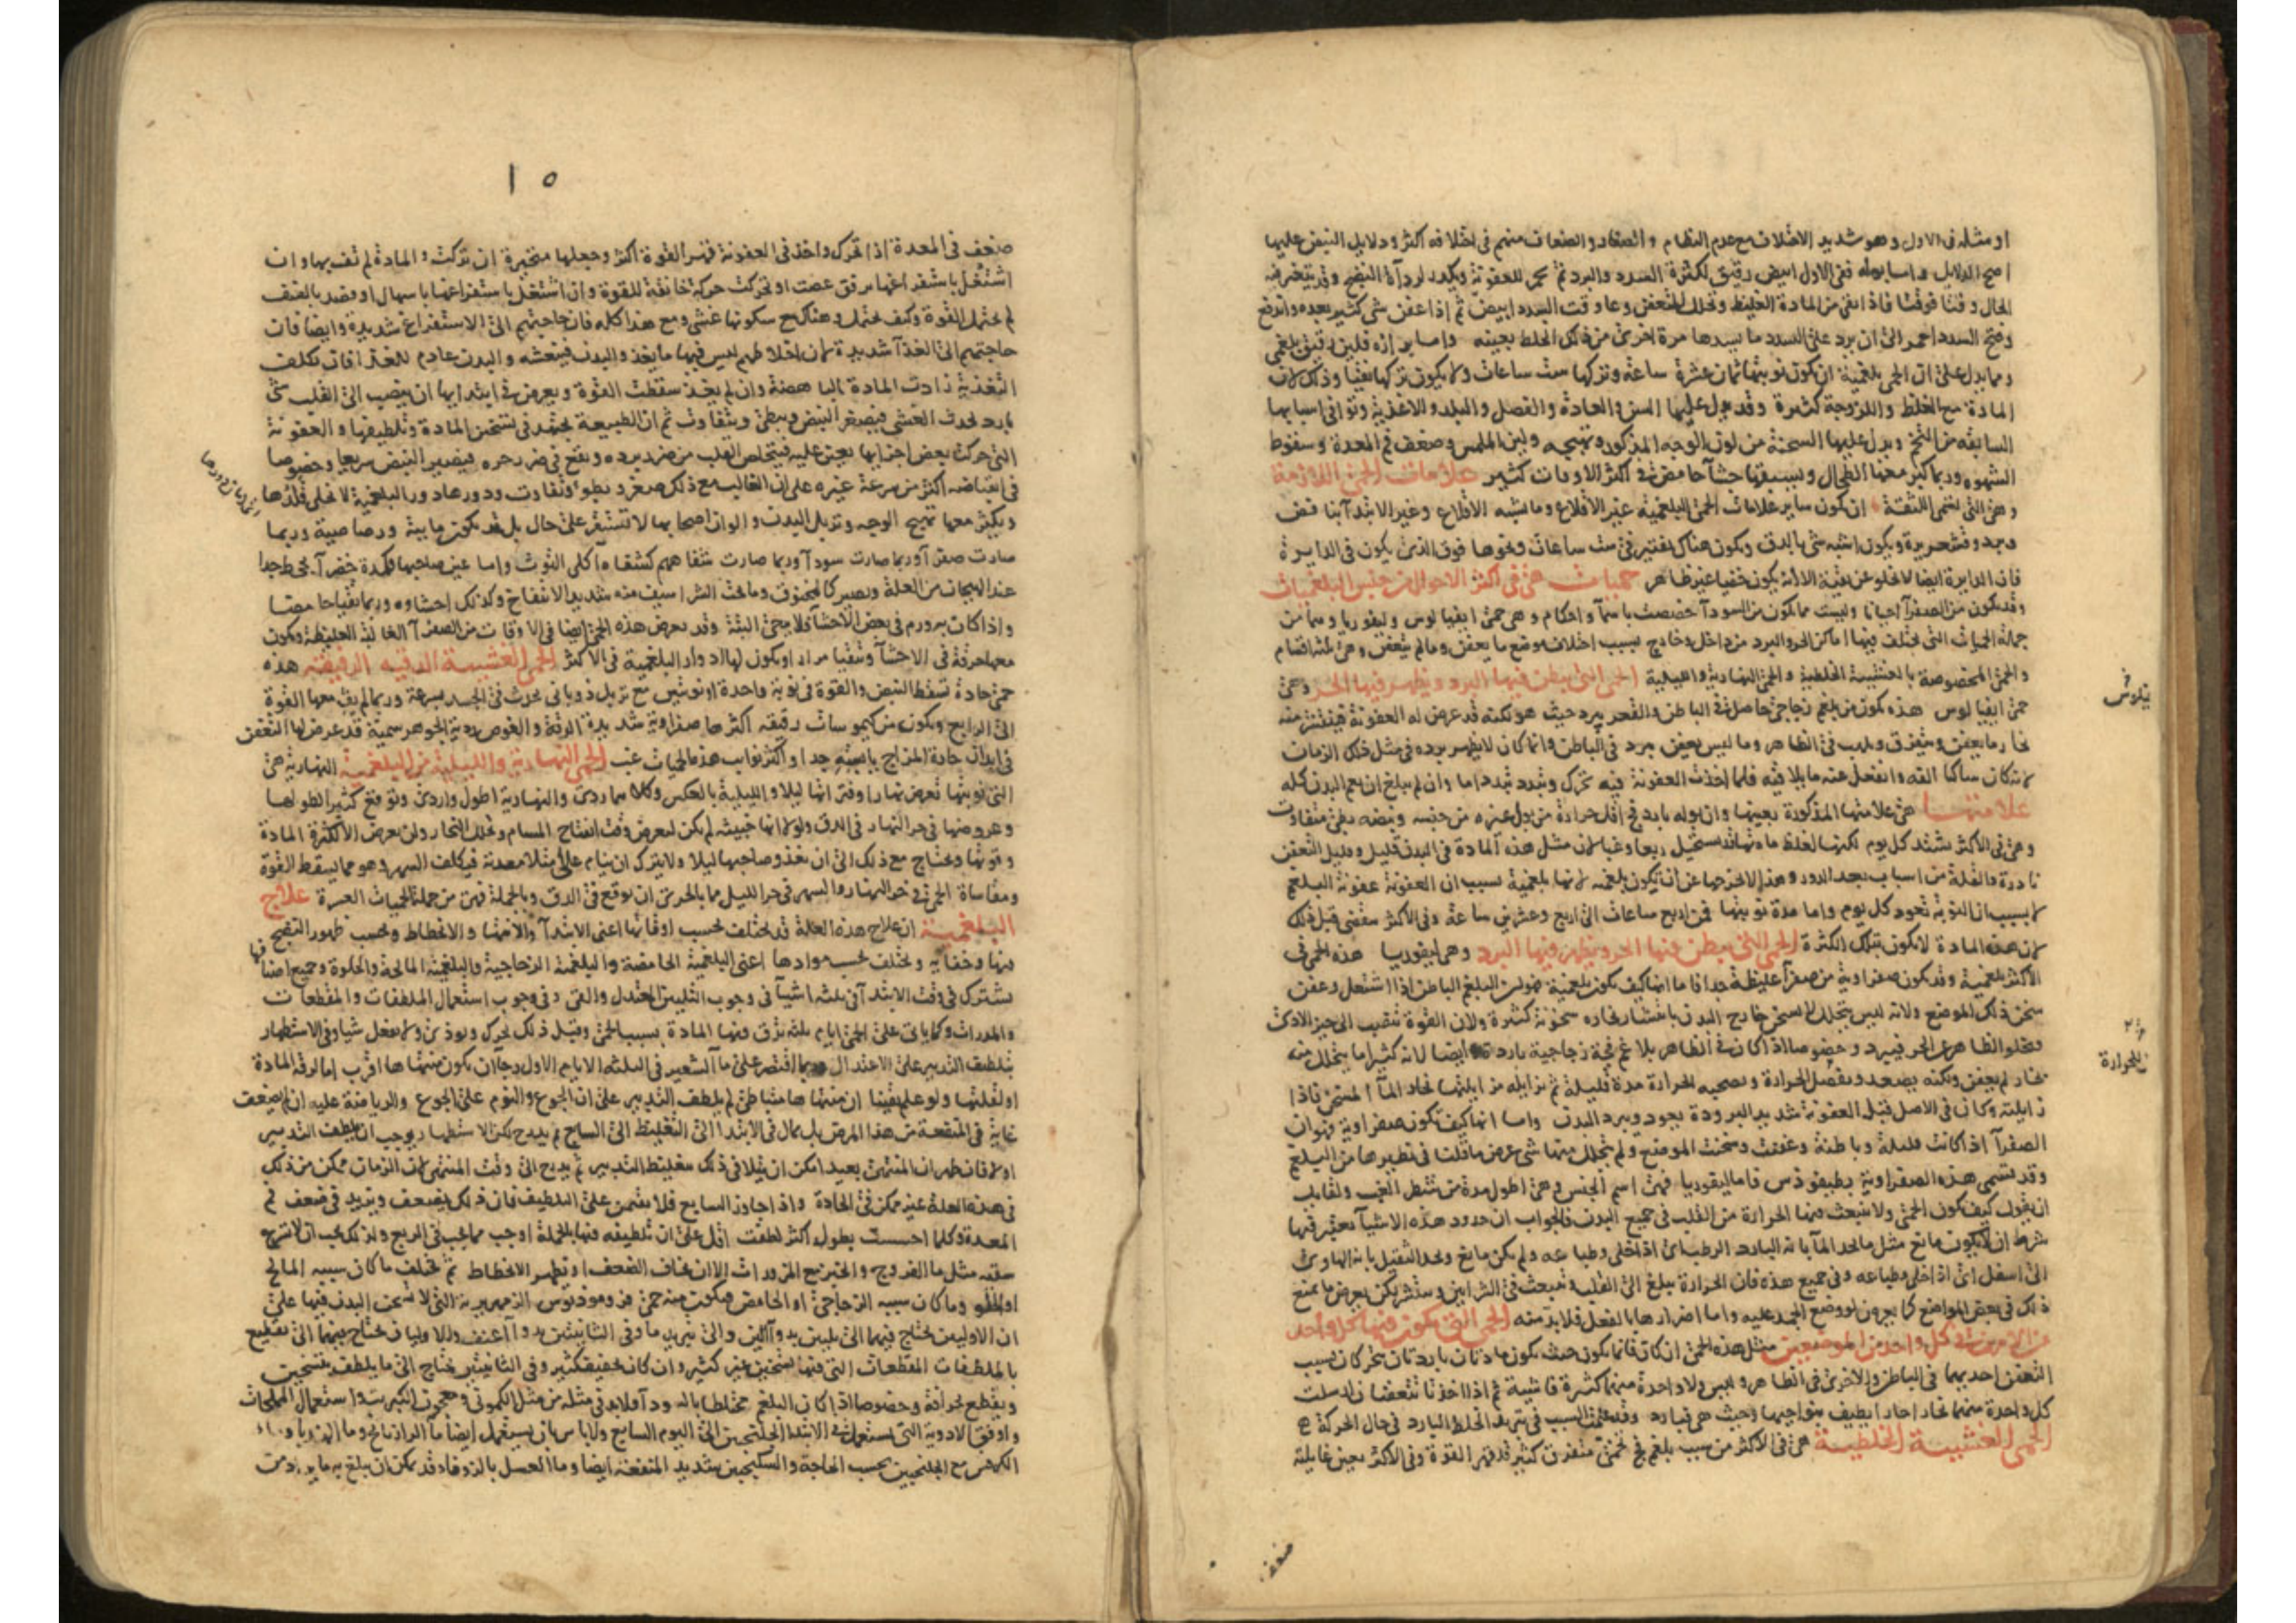 او مثله فى الاول وهو شديد الاختلاف مع عدم النظام والصغار والضعاف منهم فى اختلافه اكثر ودلايل النبض عليها
اصح الدلايل واما بوله ففى الاول ابيض رقيق لكثرة السدد والبرد ثم يحمر للعفونة ويكدر لرداءة النضج وقد يتغير فيه
الحال وقتا فوقتا فاذا بقى من المادة الغليظ وتحلل المتعفن وعاوقت السدد ابيض ثم اذا عفن شى كثير بعده واندفع
وفتح السدد احمر الى ان يرد على السدد ما يسدها مرة اخرى من ذلك الخلط بعينه واما برازه فلين رقيق بلغمى
ومما يدل على ان الحمى بلغمية ان يكون نوبتها ثمان عشرة ساعة وتركها ست ساعات ولا يكون تركها نقيا وذلك لان
المادة مع الغلظ واللزوجة كثيرة وقد يدل عليها السن والعادة والفصل والبلد والاغذية وتوافى اسبابها
السابقه من التخم ويدل عليها السحنة من لون الوجه المذكور وتهيجه ولين الملمس وضعف فم المعدة وسقوط
الشهوه وربما كبر معها الطحال ويسبقها جشآ حامض فى اكثر الاوقات كثير علامات الحمى اللازمة
وهى التى تسمى اللثقة ان يكون ساير علامات الحمى البلغميه غير الاقلاع وما يشبه الاقلاع وغير الابتدآ بنافض
وبرد وقشعريرة ويكون اشبه شى بالدق ويكون هناك تفتير فى ست ساعات ونحوها فوق الذى يكون فى الدايرة
فان الدايرة ايضا لا تخلو عن بقية الا انه يكون خفيا غير ظاهر حميات هى فى اكثر الاحوال من جنس البلغميات
وقد يكون من الصفرآ احيانا وليست مما يكون من السودآ خصصت باسمآ واحكام وهى حمى ابيفيالوس وليفوريا وهما من
جملة الحميات التى يختلف فيها اماكن الحر والبرد من داخل وخارج بسبب اختلاف موضع ما يعفن وما لم يتعفن وهى ثلثه اقسام
والحمى المخصوصة بالغشيية الخلطية والحمى النهارية والليلية الحمى التى يبطن فيها البرد ويظهر فيها الحر وهى
حمى ابيفيالوس هذه يكون من بلغم زجاجى حاصل فى الباطن والقعر يبرد حيث هو لكنه قد عرض له العفونة فينتشر منه
بخار ما يعفن ويتفرق ويلهب فى الظاهر وما ليس يعفن يبرد فى الباطن وانما كان لا يظهر برده فى مثل ذلك الزمان
لانه كان ساكنا الفه وانفعل عنه ما يلاقيه فلما اخذت العفونة فيه تحرك وتبدد تبددا ما وان لم يبلغ ان يعم البدن كله
علامتها هى علامتها المذكورة بعينها وان بوله بارد فج اقل حرارة من بول غيره من جنسه ونبضه بطى متفاوت
وهى فى الاكثر تشتد كل يوم لكنها لغلظ مادتها قد يستحيل ربعا وغبا لان مثل هذه المادة فى البدن قليل وقليل التعفن
نادرة والقلة من اسباب بعد الدور وهذا لا يخرجها عن ان يكون بلغميه لانها بلغمية بسبب ان العفونة عفونة البلغم
لا بسبب ان النوبة تعود كل يوم واما مدة نوبتها فمن اربع ساعات الى اربع وعشرين ساعة وفى الاكثر ينقضى قبل ذلك
لان هذه المادة لا يكون بتلك الكثرة الحمى التى يبطن فيها الحر ويظهر فيها البرد وهى ليفوريا هذه الحمى فى
الاكثر بلغمية وقد يكون صفراوية من صفرآ غليظة جدا فاما انها كيف يكون بلغمية فهو لان البلغم الباطن اذا اشتعل وعفن
سخن ذلك الموضع ولانه ليس يتحلل لا يسخن خارج البدن بانتشار بخاره سخونة كثيرة ولان القوة تنصب الى حيز الاذى
وتخلو الظاهر عن الحر فيبرد وخصوصا اذا كان فى الظاهر بلاغم فجة زجاجية باردة ايضا لانه كثيرا ما يتحلل منه
بخار لم يعفن ولكنه يصعد وبفضل الحرارة وتصحبه الحرارة مدة قليلة ثم تزايله مزايلتها بخار المآ المسخن فاذا
زايلته وكان فى الاصل قبل العفونة شديد البرودة يعود ويبرد البدن واما انها كيف تكون صفراوية فهو ان
الصفرآ اذا كانت قليلة وباطنة وعفنت وسخنت الموضع ولم يتحلل منها شى عرض ما قلنا فى نظيرها من البلغم
وقد تسمى هذه الصفراوية بطيفوذس فاما ليفوريا فهى اسم الجنس وهى اطول مدة من شطر الغب ولقايل
ان يقول كيف تكون الحمى ولا ينبعث فيها الحرارة من القلب فى جميع البدن فالجواب ان حدود هذه الاشيآ يعتبر فيها
شرط ان لا يكون مانع مثل ما نحد المآ بانه البارد الرطب اى اذا خلى وطباعه ولم يكن مانع ونحد الثقيل بانه الهاوى
الى اسفل اى اذا خلى وطباعه وفى جميع هذه فان الحرارة تبلغ الى القلب وتنبعث فى الشرايين وتنتشر لكن يعرض ما يمنع
ذلك فى بعض المواضع كما يعرض لو وضع الجمد عليه واما اضرارها بالفعل فلا بد منه الحمى التى يكون فيها كل واحد
من الامرين فى كل واحد من الموضعين مثل هذه الحمى ان كان فانما يكون حيث يكون مادتان باردتان يتحركان بسبب
التعفن احديهما فى الباطن والاخرى فى الظاهر وليس ولا واحدة منهما كثيرة فاشية ثم اذا اخذتا تتعفنان ارسلت
كل واحدة منهما بخارا حارا يطيف بنواحيها وحيث هى فبارد وقد علمت السبب فى تبريد الخلط البارد فى حال الحركة
الحمى الغشيية الخلطية هى فى الاكثر من سبب بلغم فج متفرق كثير قد قهر القوة وفى الاكثر يعين غايلته
ضعف
١٥
ضعف فم المعدة اذا تحرك واخذ فى العفونة قهر القوة اكثر وجعلها متحيرة ان تركت والمادة لم تف بها وان
اشتغل باستفراغها برفق عصت او تحركت حركة خانقة للقوة وان اشتغل باستفراغها باسهال او فصد بالعنف
لم يحتمل القوة وكيف يحتمل وهناك مع سكونها غشى ومع هذا كله فان حاجتهم الى الاستفراغ شديدة وايضا فان
حاجتهم الى الغذآ شديدة لان اخلاطهم ليس فيها ما يغذو البدن فينعشه والبدن عادم للغذا فان تكلفت
التغذية زادت المادة الباهضة وان لم يغذ سقطت القوة ويعرض فى ابتدايها ان ينصب الى القلب شى
بارد يحدث الغشى فيصغر النبض ويبطئ ويتفاوت ثم ان الطبيعة يجتهد فى تسخين المادة وتلطيفها والعفونة
التى حركت بعض اجزايها يعين عليه فيتخلص القلب من ضرر برده ويقع فى ضرر حره فيصير النبض سريعا وخصوصا
فى انقباضه اكثر من سرعة غيره على ان الغالب مع ذلك صغر وبطو وتفاوت ودورها دور البلغمية لا تخلى
ويكثر معها تهيج الوجه وترهل البدن والوان اصحابها لا تستقر على حال بل قد يكون مايية ورصاصية وربما
صارت صفرآ وربما صارت سودآ وربما صارت شفاههم كشفاه آكلى التوث واما عين صاحبها فكمدة خضرآ تجحظ جدا
عند الهيجان من العلة ويصير كالمخنوق وما تحت الشراسيف منه شديد الانتفاخ وكذلك احشاوه وربما تقيا حامضا
واذا كان به ورم فى بعض الاحشآ فلا يرجى البتة وقد يعرض هذه الحمى ايضا فى الاوقات من الصفرآ الغالبة الغليظة ويكون
معها حرقة فى الاحشآ وتقيا مرارا ويكون لها ادوار البلغمية فى الاكثر الحمى الغشيية الدقية الرقيقه هذه
حمى حادة تسقط النبض والقوة فى نوبة واحدة او نوبتين مع ترهل ذوبانى يحدث فى الجسد بسرعة وربما لم يبق معها القوة
الى الرابع ويكون من كيموسات رقيقه اكثرها صفراوية شديدة الرقة والغوص رديية الجوهر سمية قد عرض لها التعفن
فى ابدان حادة المزاج يابسته جدا واكثر نوايب هذه الحميات غب الحمى النهارية والليلية من البلغمية النهارية هى
التى نوبتها تعرض نهارا وفترتها ليلا والليلية بالعكس وكلاهما ردى والنهارية اطول واردى وتوقع كثيرا لطولها
وعروضها فى حر النهار فى الدق ولولا انها خبيثه لم يكن لتعرض وقت انفتاح المسام وتحلل البخار ولن يعرض الا لكثرة المادة
وقوتها ويحتاج مع ذلك الى ان يغذو صاحبها ليلا ولا يترك ان ينام على امتلا معدته فيكلف السهر وهو مما يسقط القوة
ومقاساة الحمى فى حر النهار والسهر فى حر الليل مما بالحرى ان يوقع فى الدق وبالجملة فهى من جملة الحميات العسرة علاج
البلغمية ان علاج هذه العلة قد يختلف بحسب اوقاتها اعنى الابتدآ والانتها والانحطاط وبحسب ظهور النضج
فيها وخفايه ويختلف بحسب موادها اعنى البلغمية الحامضة والبلغمية الزجاجية والبلغمية المالحة والحلوة وجميع اصنافها
يشترك فى وقت الابتدآ فى ثلثه اشيآ فى وجوب التليين المعتدل والقى وفى وجوب استعمال الملطفات والمقطعات
والمدرات وكما ياتى على الحمى ايام ثلثه ترق فيها المادة بسبب الحمى وقبل ذلك يحرك ويوذى ولا يفعل شيا وفى الاستظهار
بتلطيف التدبير على الاعتدال وربما اقتصر على مآ الشعير فى الثلثه الايام الاول رجآ ان يكون منتهاها اقرب اما لرقة المادة
او لقلتها ولو علم يقينا ان منتهاها متباطى لم يلطف التدبير على ان الجوع والنوم على الجوع والرياضة عليه ان لم يضعف
غاية فى المنفعة من هذا المرض بل يمال فى الابتدا الى التغليظ الى السابع ثم يدرج لكن الاستظهار يوجب ان يلطف التدبير
اولا فان ظهر ان المنتهى بعيد امكن ان يتلافى ذلك بتغليظ التدبير ثم يدرج الى وقت المنتهى لان الزمان ممكن من ذلك
فى هذه العلة غير ممكن فى الحادة واذا جاوز السابع فلا يقيمن على التلطيف فان ذلك يضعف ويزيد فى ضعف فم
المعدة وكلما احسست بطول اكثر لطفت اقل على ان تلطيفه فيها بالجملة اوجب مما يجب فى الربع ولذلك يجب ان لا يتبرع
سقيه مثل مآ الفروج والخبز مع المزورات الا ان يخاف الضعف او تظهر الانحطاط ثم يختلف ما كان سببه المالح
او الحلو وما كان سببه الزجاجى او الحامض فيكون منه حمى الزمهريرية التى لا يسخن البدن فيها على
ان الاوليين يحتاج فيهما الى تليين بدوآ الين والى تبريد ما وفى الثانيتين بدوآ اعنف والاوليان يحتاج فيهما الى تقطيع
بالملطفات المقطعات التى فيها تسخين غير كثير وان كان تجفيف كثير وفى الثانيتين يحتاج الى ما يلطف بتسخين
ويقطع بحرافة وخصوصا اذا كان البلغم مختلطا بالسودآ فلا بد فى مثله من مثل الكمونى ومعجون الكبريت واستعمال الملحات
واوفق الادوية التى تستعمل فى الابتدا الجلنجبين الى اليوم السابع ولا باس بان يستعمل ايضا مآ الرازيانج ومآ الهندبا ومآء
الكرفس مع الجلنجبين بحسب الحاجة والسكنجبين شديد المنفعة ايضا ومآ العسل بالزوفا وقد يمكن ان يبلغ به ما يراد من